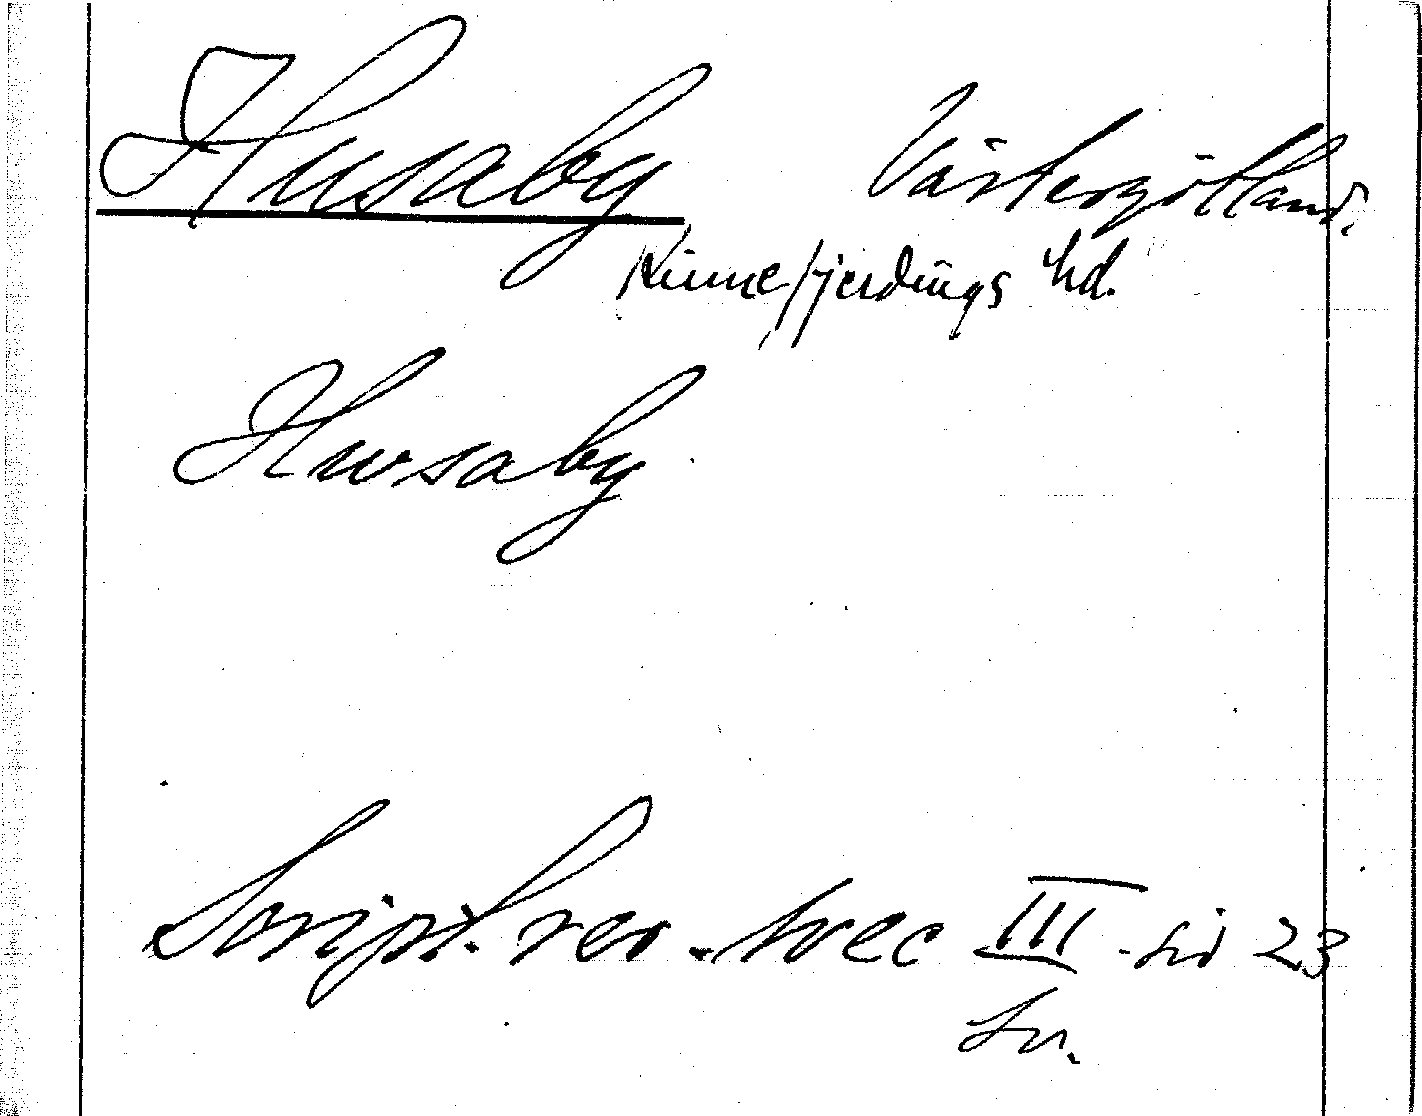 Husaby Västergötland.
Kinnefjerdings hd.
Husaby
Script. rer. svec III sid 23